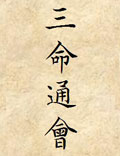 三命通會